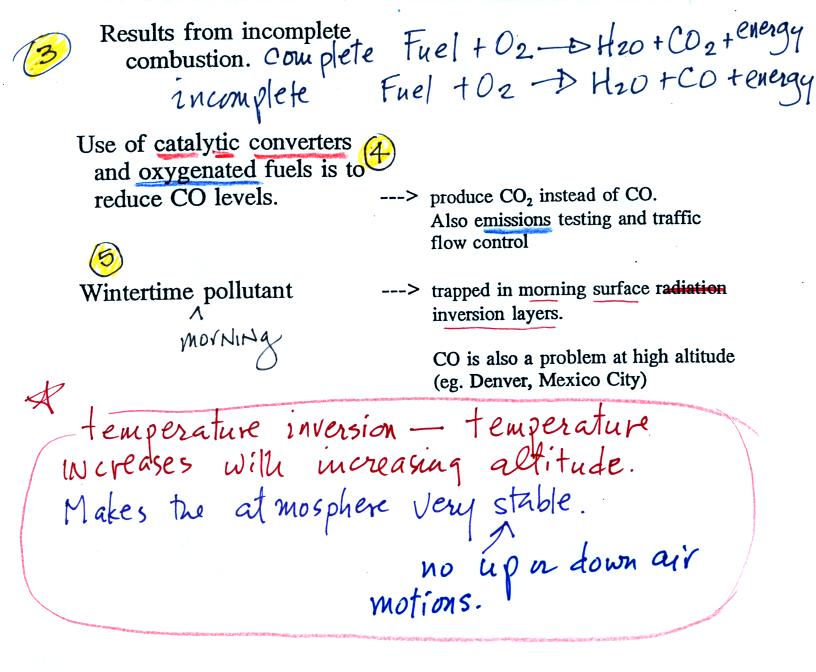 ③ Results from incomplete
combustion. complete Fuel + O2 → H2O + CO2 + energy
incomplete Fuel + O2 → H2O + CO + energy
Use of catalytic converters ④
and oxygenated fuels is to
reduce CO levels.
---> produce CO₂ instead of CO.
Also emissions testing and traffic
flow control
⑤
Wintertime pollutant
^
morning
---> trapped in morning surface radiation
inversion layers.
CO is also a problem at high altitude
(eg. Denver, Mexico City)
temperature inversion — temperature
increases with increasing altitude.
Makes the atmosphere very stable.
no up or down air
motions.